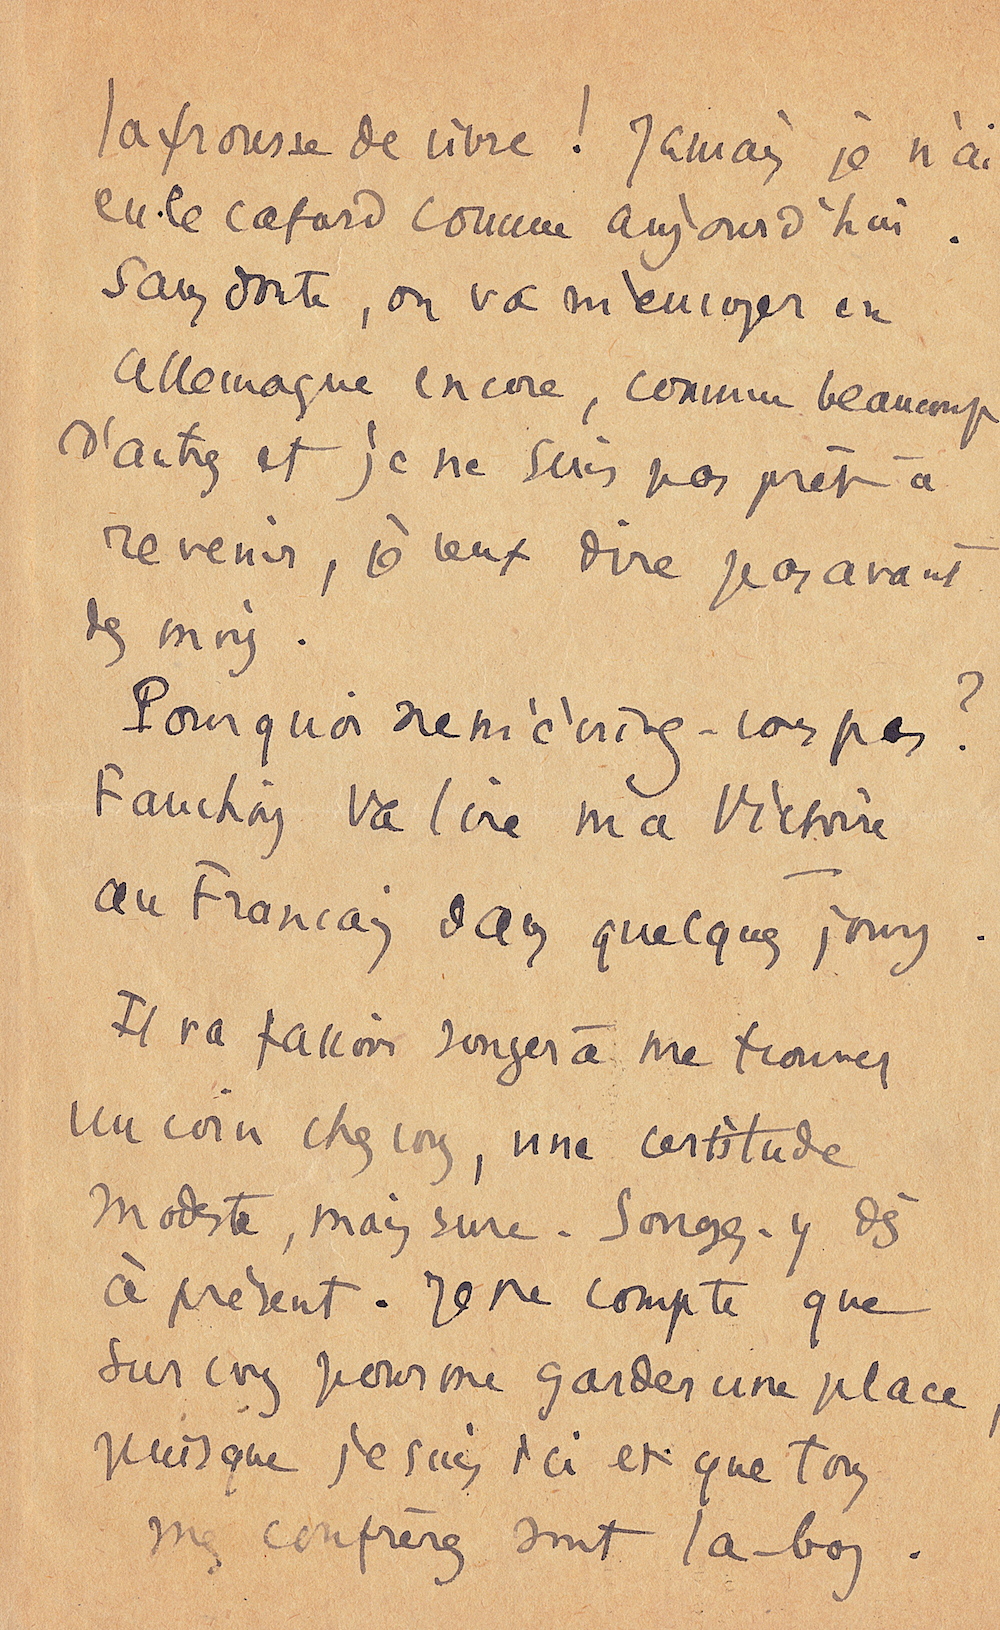 la frousse de vivre ! Jamais je n'ai
eu le cafard comme aujourd'hui.
Sans doute, on va m'envoyer en
Allemagne encore, comme beaucoup
d'autres et je ne suis pas prêt à
revenir, je veux dire pas avant
des mois.
Pourquoi ne m'écrivez-vous pas ?
Fauchois va lire ma Victoire
au Français dans quelques jours.
Il va falloir songer à me trouver
un coin chez vous, une certitude
modeste, mais sure. Songez-y dès
à présent. Je ne compte que
sur vous pour me garder une place,
puisque je suis ici et que tous
mes confrères sont là-bas.